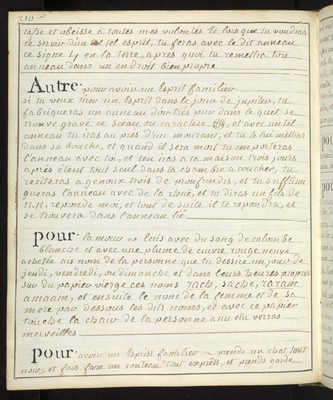 210
fasse et obeisse à toutes mes volontés et lors que tu voudras
te servir d'un tel esprit, tu feras avec le dit anneau
ce signe en la terre, après quoi tu remettra ton
anneau dans un endroit bien propre
Autre pour avoir un Esprit familier
si tu veux tirer un Esprit dans le jour de jupiter, tu
fabriqueras un anneau d'or très pur dans le quel se
trouve gravé ce sceau ou caractère, et avec un tel
anneau tu iras au près d'un mourant, et tu le lui mettras
dans sa bouche, et quand il sera mort tu emporteras
l'anneau avec toi, et ten iras a ta maison, trois jours
après étant tout seul dans ta chambre a coucher, tu
reciteras a genoux trois de profundis, et tu
l'anneau avec de la soie, et tu diras un fois de
N.N. reponde moi, et tout de suite il te repondra, et
se trouvera dans l'anneau lié
Pour la mour Ecris avec du sang de colombe
blanche et avec une plume de cuivre rouge neuve
achetté ais nom de la personne que tu desire un jour de
jeudi, vendredi, ou dimanche et dans leurs heures propres
sur du papier vierge ces noms rach, sache, raram
amaam, et ensuite le nom de la femme et de sa
mere par dessous les dits noms, et avec ce papier
touche la chair de la personne a nu et tu verras
merveilles
Pour avoir un Esprit familier prends un chat tout
noir, et fais faire un tout exprès, et prends garde